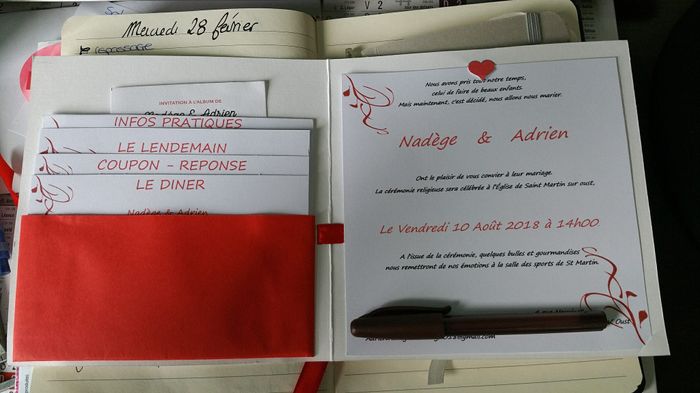 Mercredi 28 février
repassage
INVITATION À L'ALBUM DE
Nadège & Adrien
INFOS PRATIQUES
LE LENDEMAIN
COUPON - REPONSE
LE DINER
Nadège & Adrien
Nous avons pris tout notre temps,
celui de faire de beaux enfants.
Mais maintenant, c'est décidé, nous allons nous marier.
Nadège & Adrien
Ont le plaisir de vous convier à leur mariage.
La cérémonie religieuse sera célébrée à l'Église de Saint Martin sur oust,
Le Vendredi 10 Août 2018 à 14h00
A l'issue de la cérémonie, quelques bulles et gourmandises
nous remettront de nos émotions à la salle des sports de St Martin.
Oust
@gmail.com